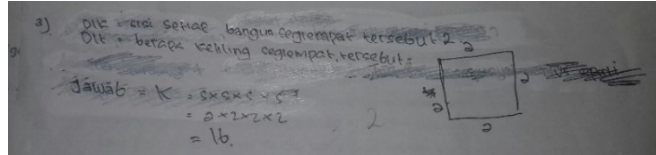 3) Dik = sisi setiap bangun segiempat tersebut 2
Dit = berapa keliling segiempat tersebut =
Jawab = K = s x s x s x s
= 2 x 2 x 2 x 2
= 16.
2
2
2
2